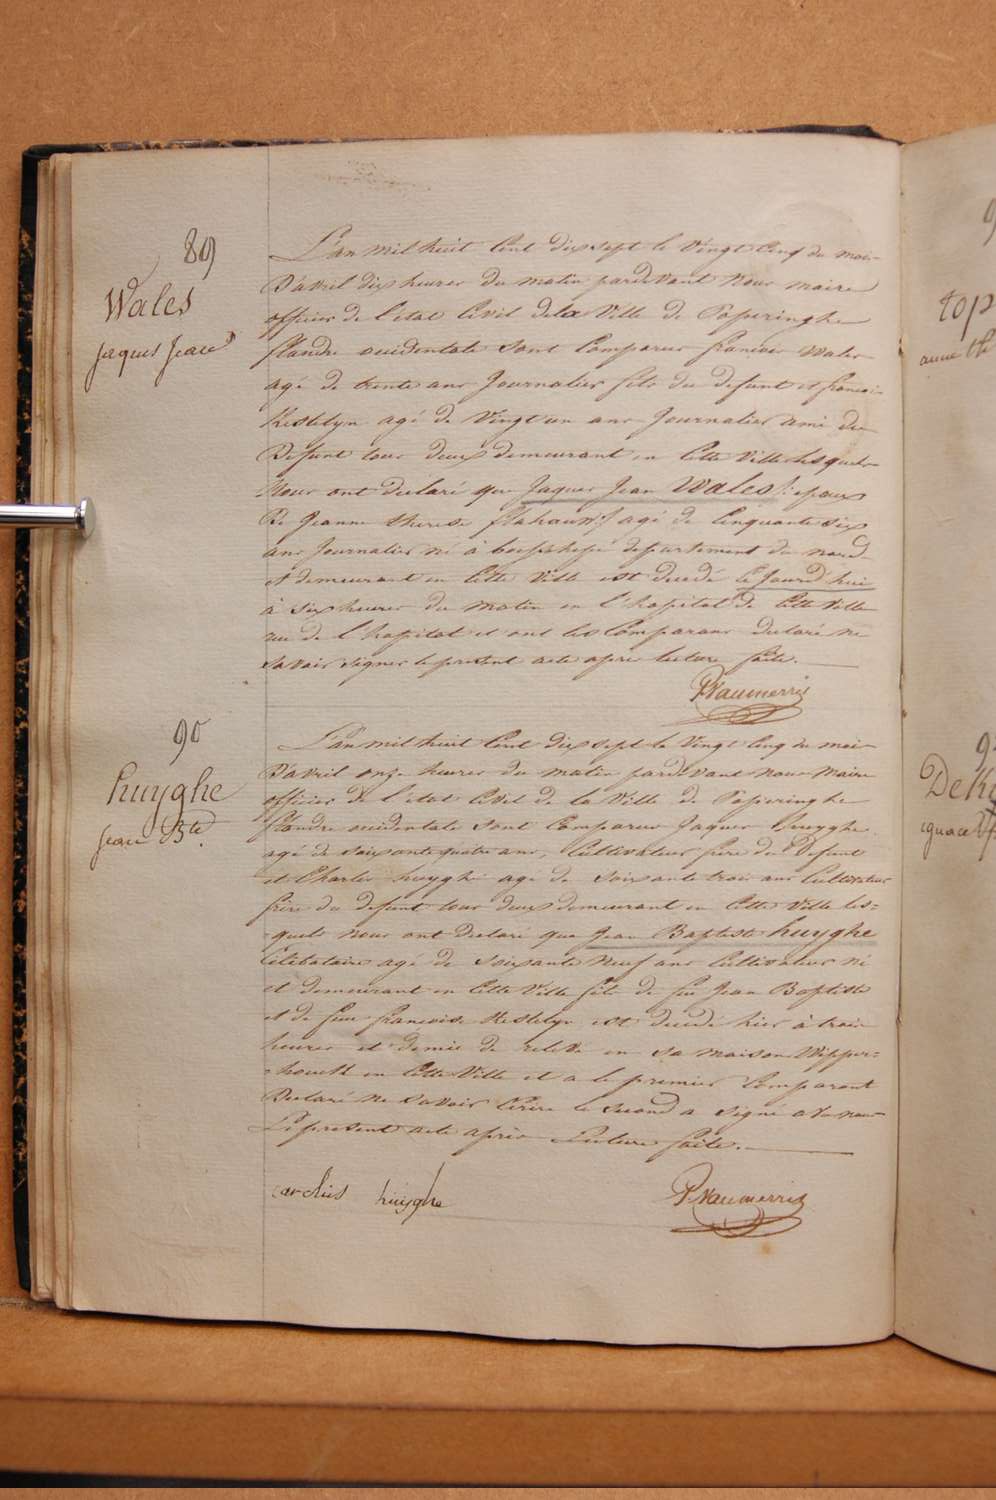 89
Wales
Jaques Jean
L'an mil huit Cent dix sept le Vingt Cinq du mois
D'avril dix heures du matin pardevant Nous maire
officier de l'état Civil de la Ville de Poperinghe
flandre occidentale sont Comparus francois Wales
agé de trente ans Journalier fils du Defunt et francois
Kestelyn agé de Vingt un ans Journalier ami du
Defunt tous deux demeurant en Cette Ville lesquels
Nous ont declaré que Jaques Jean Wales epoux
De Jeanne therese flahauw agé de Cinquante six
ans Journalier né à boeschepe departement du nord
et demeurant en Cette Ville est decedé Ce Jourd'hui
à six heures du matin en l'hopital de Cette Ville
rue de l'hopital et ont les Comparans declaré ne
savoir signer le present acte apres lecture faite.
P. Vanmerris
90
huyghe
Jean Bte.
L'an mil huit Cent dix sept le Vingt Cinq du mois
D'avril onze heures du matin pardevant nous Maire
officier de l'état Civil de la Ville de Poperinghe
flandre occidentale sont Comparus Jaques huyghe
agé de soixante quatre ans, Cultivateur frere du Defunt
et Charles huyghe agé de soixante trois ans Cultivateur
frère du defunt tous deux demeurant en Cette Ville les=
=quels nous ont declaré que Jean Baptiste huyghe
Celibataire agé de soixante Neuf ans Cultivateur né
et demeurant en Cette Ville fils de feu Jean Baptiste
et de feue francoise Kestelyn est decedé hier à trois
heures et demie de relevé en sa maison Wipper=
=houck en Cette Ville et a le premier Comparant
Declaré ne savoir Ecrire le second a signé avec nous
Le present acte après Lecture faite.
carolus huÿghe
P. Vanmerris
9
top
anne th
9
Delh
ignace